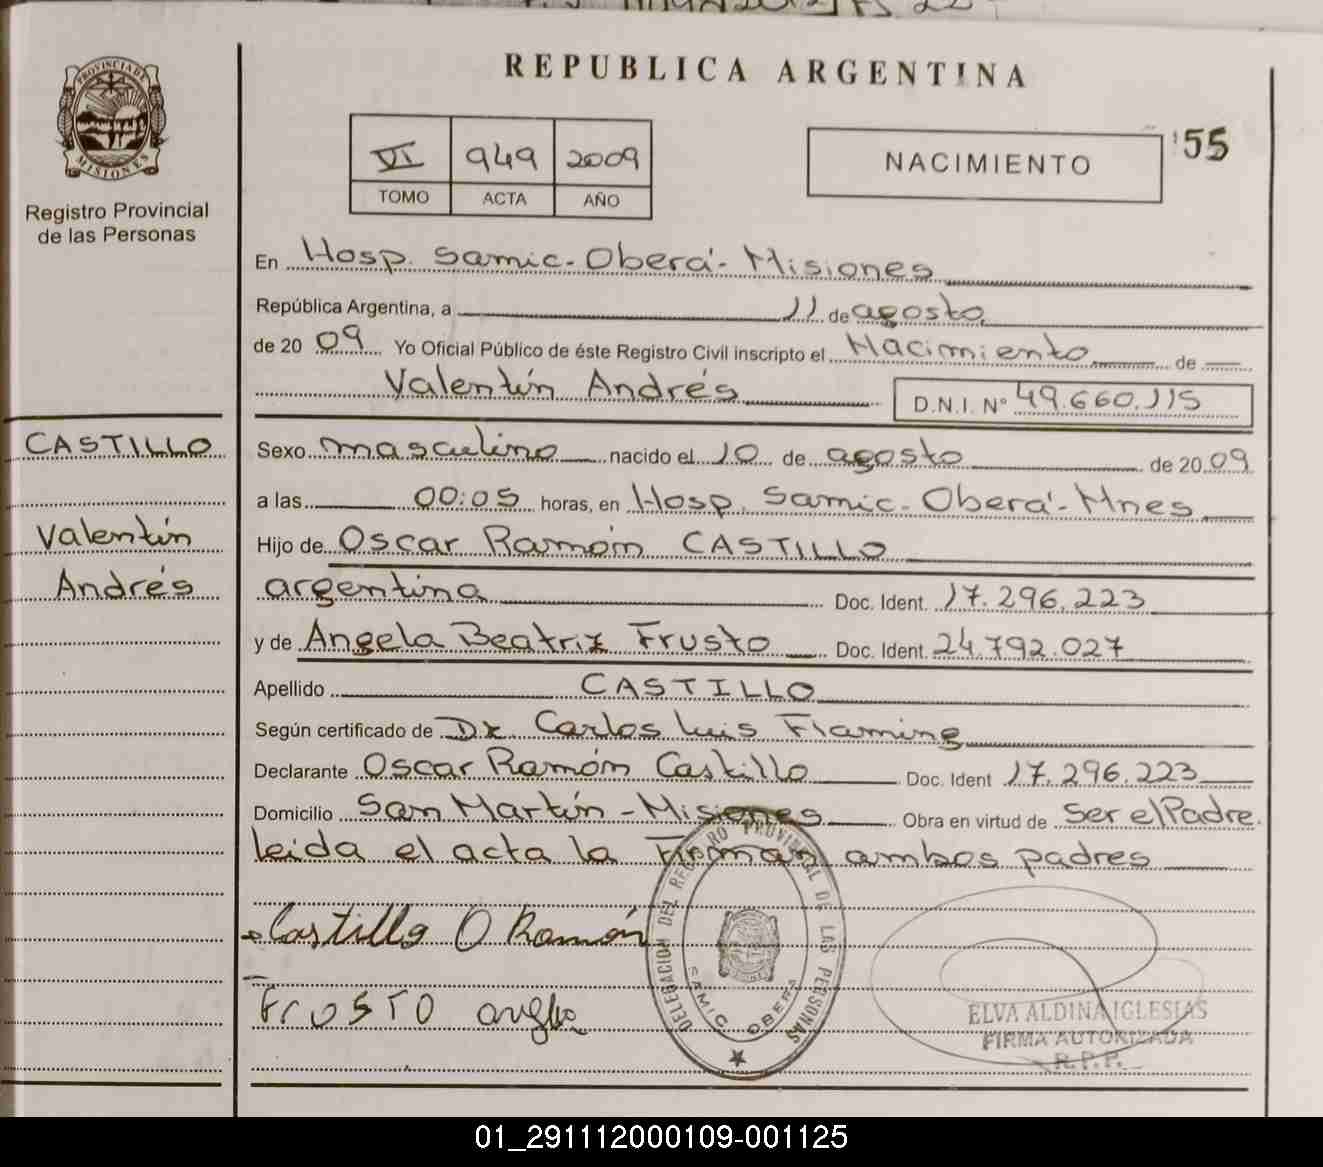 REPUBLICA ARGENTINA
PROVINCIA DE MISIONES
Registro Provincial
de las Personas
VI 949 2009
TOMO ACTA AÑO
NACIMIENTO
55
En Hosp. Samic - Oberá - Misiones
República Argentina, a 11 de agosto
de 20 09 Yo Oficial Público de éste Registro Civil inscripto el Nacimiento de
Valentín Andrés D.N.I. Nº 49.660.115
CASTILLO
Valentín
Andrés
Sexo masculino nacido el 10 de agosto de 20 09
a las 00:05 horas, en Hosp. Samic - Oberá - Mnes
Hijo de Oscar Ramón CASTILLO
argentina Doc. Ident. 17.296.223
y de Angela Beatriz Frusto Doc. Ident. 24.792.027
Apellido CASTILLO
Según certificado de Dr. Carlos Luis Flaming
Declarante Oscar Ramón Castillo Doc. Ident 17.296.223
Domicilio San Martín - Misiones Obra en virtud de Ser el Padre.
leida el acta la Firman ambos padres
Castillo O Ramón
FROSTO
DELEGACION DEL REGISTRO PROVINCIAL DE LAS PERSONAS
SAMIC OBERA
ELVA ALDINA IGLESIAS
FIRMA AUTORIZADA
R.P.P.
01_291112000109-001125